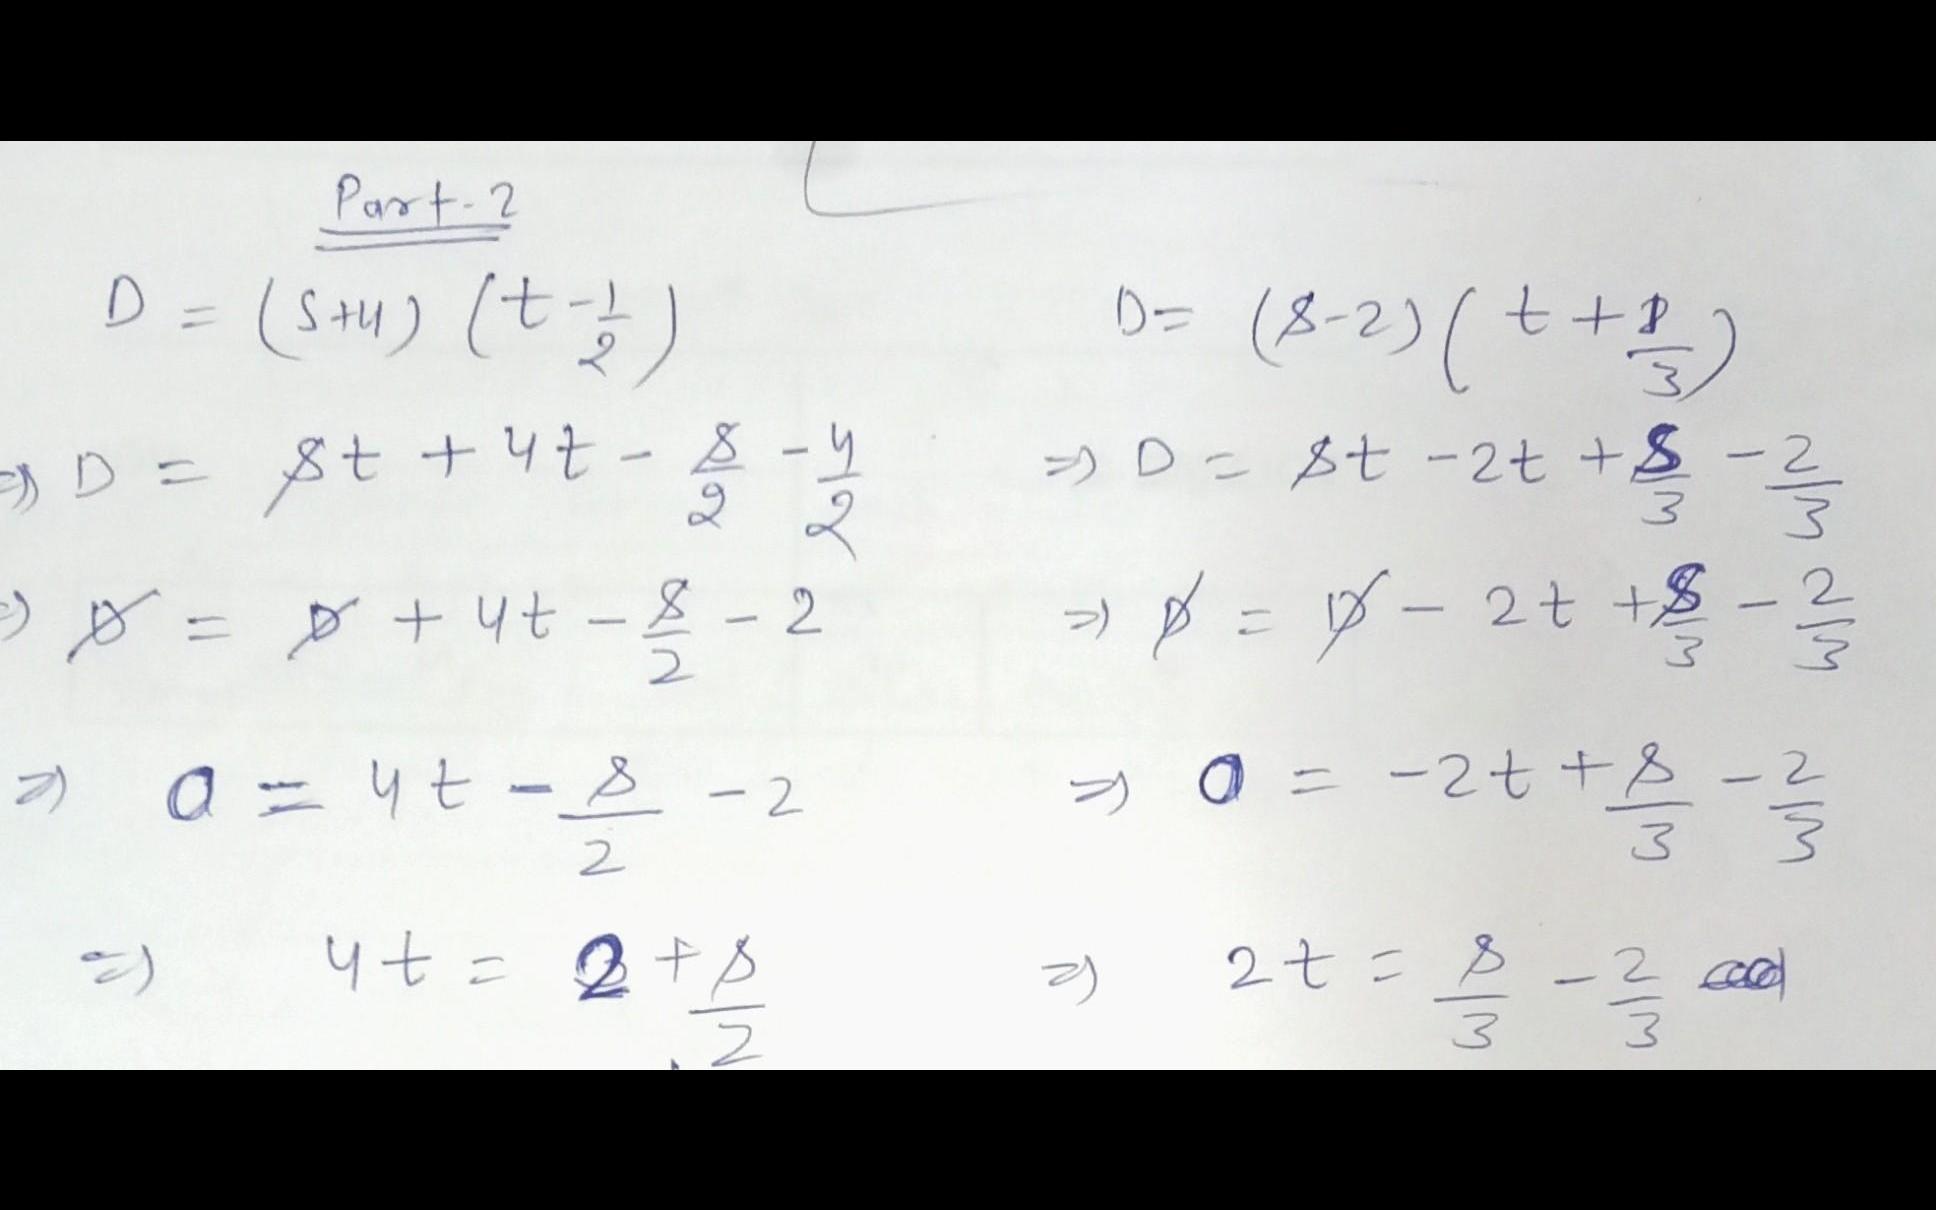 Part-2
D = (s+4) (t - 1/2)
⇒ D = st + 4t - s/2 - 4/2
⇒ D = D + 4t - s/2 - 2
⇒ 0 = 4t - s/2 - 2
⇒ 4t = 2 + s/2
D = (s-2) (t + 1/3)
⇒ D = st - 2t + s/3 - 2/3
⇒ D = D - 2t + s/3 - 2/3
⇒ 0 = -2t + s/3 - 2/3
⇒ 2t = s/3 - 2/3